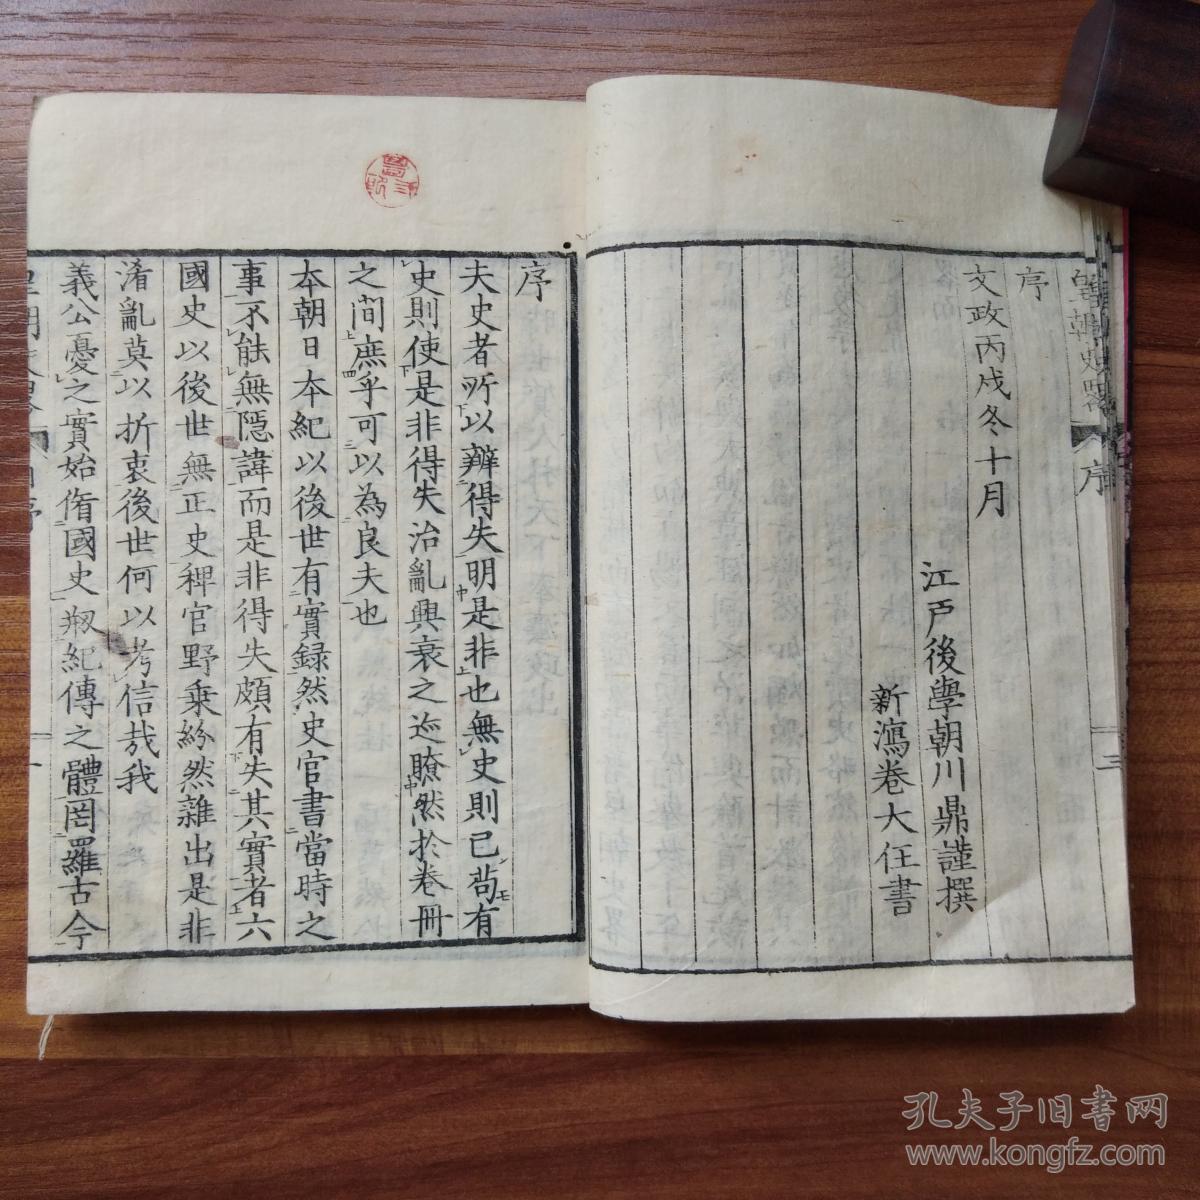 皇朝史略
序
三
序
文政丙戌冬十月
江戸後學朝川鼎謹撰
新瀉卷大任書
序
夫史者所以辨得失明是非也無史則已苟有
史則使是非得失治亂興衰之迹瞭然於卷冊
之間庶乎可以為良夫也
本朝日本紀以後世有實録然史官書當時之
事不能無隱諱而是非得失頗有失其實者六
國史以後世無正史稗官野乘紛然雜出是非
淆亂莫以折衷後世何以考信哉我
義公憂之實始脩國史剏紀傳之體罔羅古今
孔夫子旧書网
www.kongfz.com